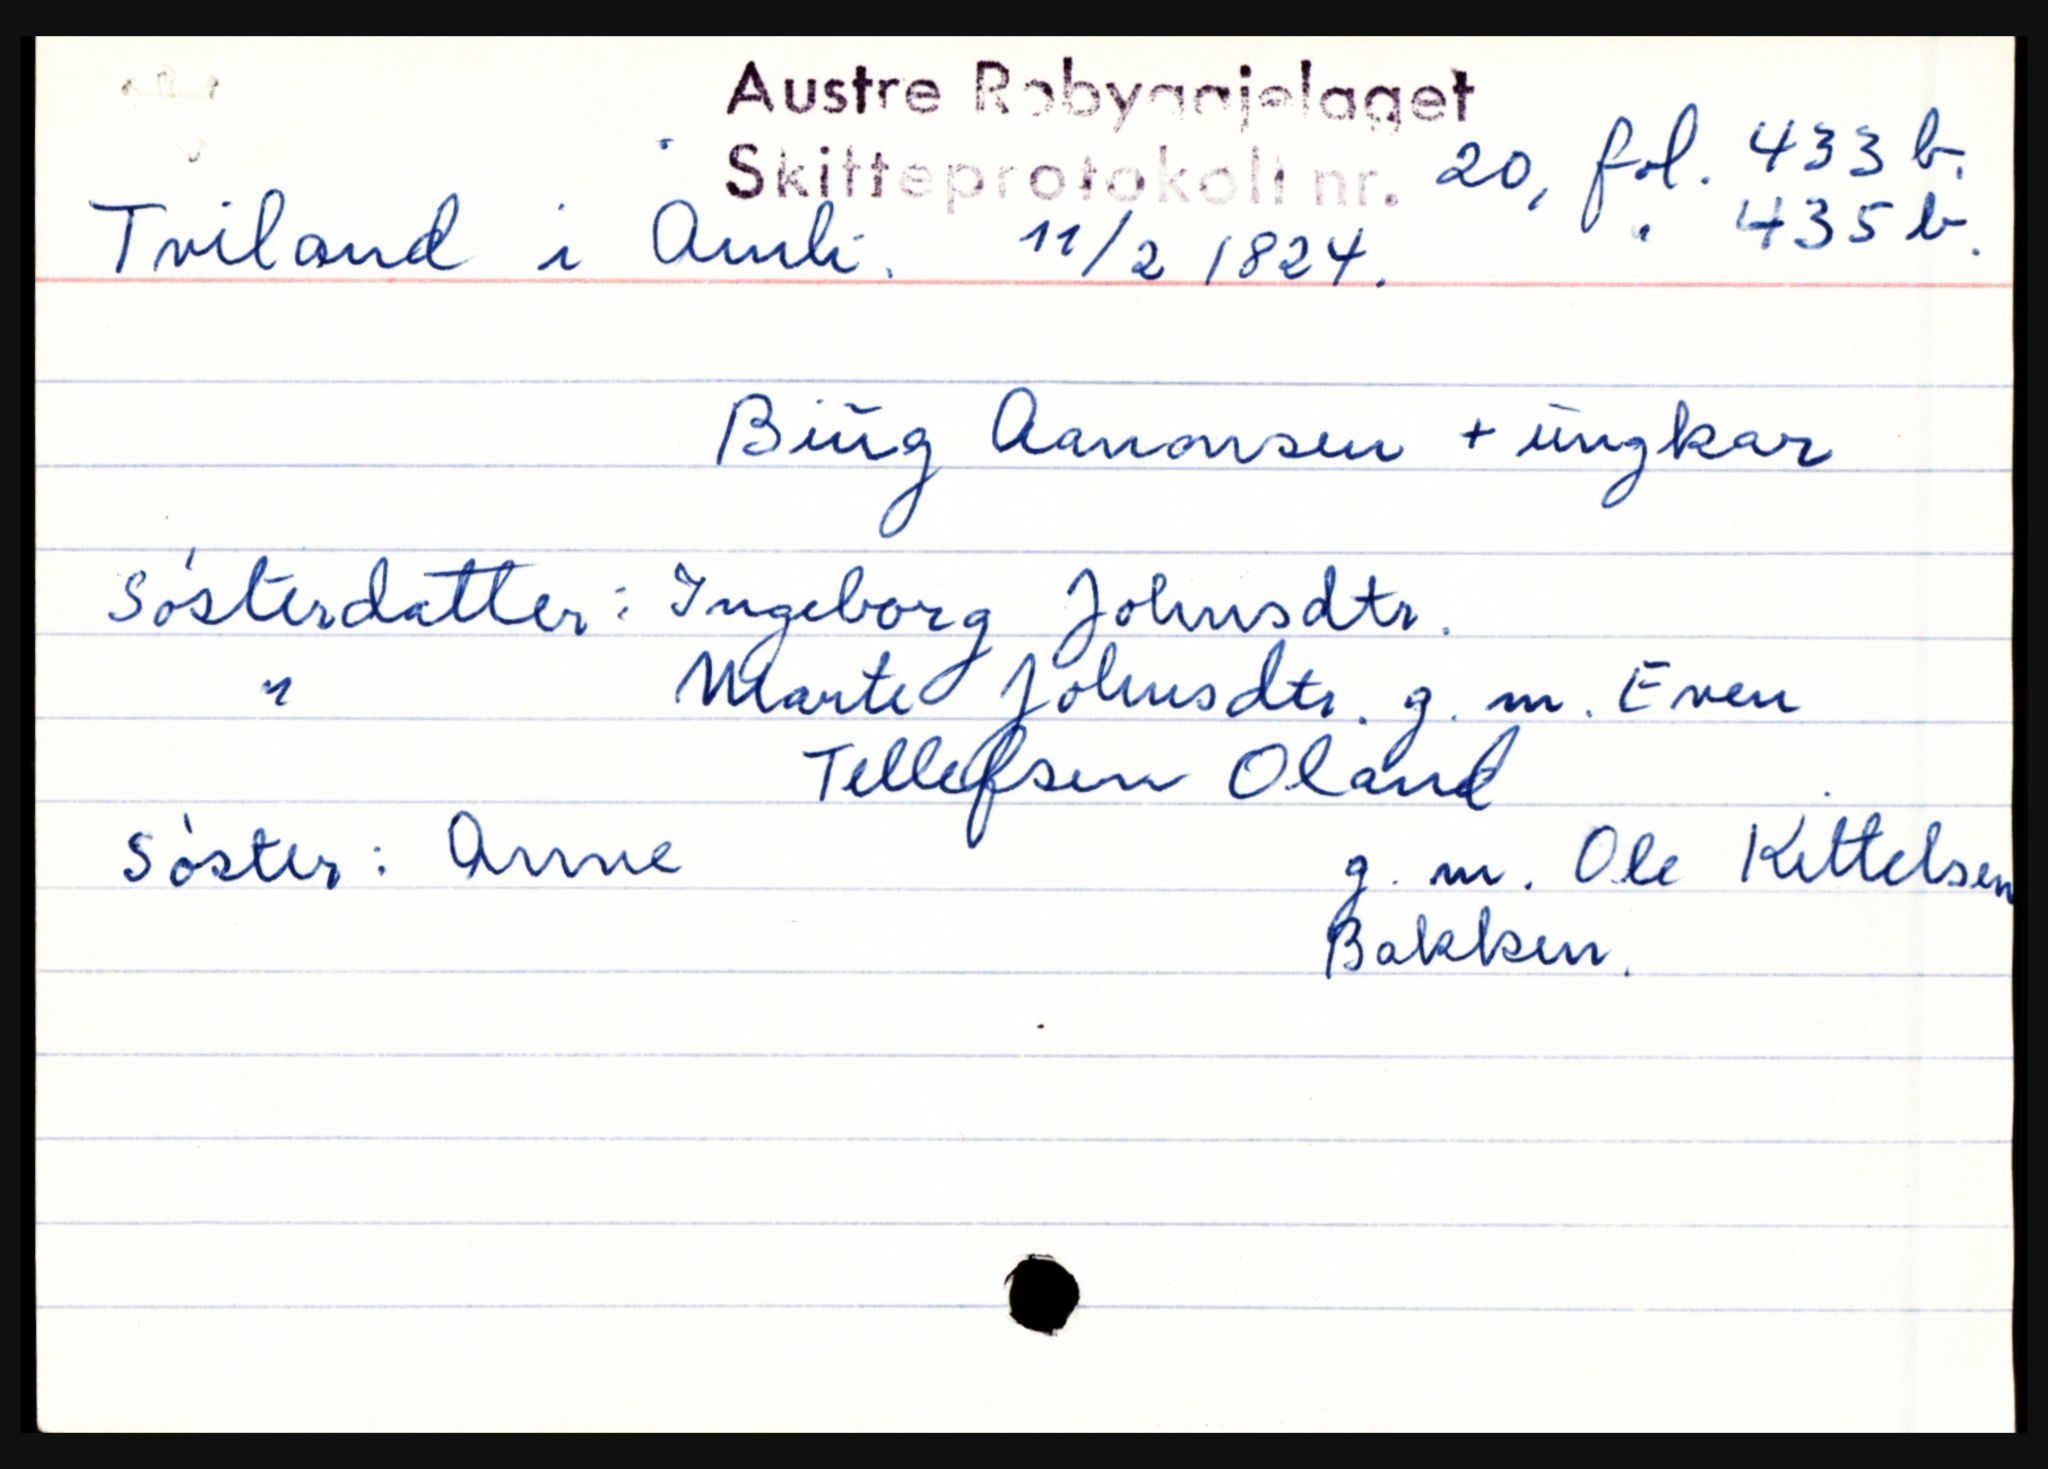 Austre Robyggjelaget
Skifteprotokoll nr. 20, fol. 433 b.
Tviland i Amli. 11/2 1824. " 435 b.
Biug Aanonsen + ungkar
Sósterdatter: Ingeborg Johnsdtr.
" Marte Johnsdtr. g. m. Even
Tellefsen Oland
Sóster: Anne g. m. Ole Kittelsen
Bakken.